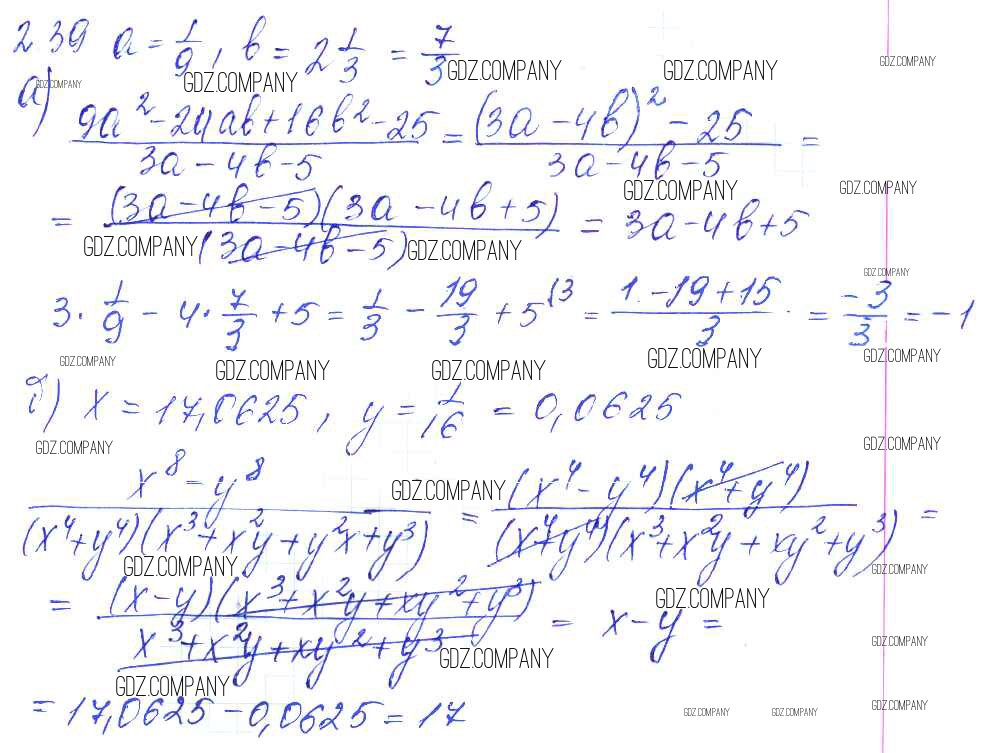 239 a = 1/9, b = 2 1/3 = 7/3
GDZ.COMPANY GDZ.COMPANY GDZ.COMPANY GDZ.COMPANY GDZ.COMPANY
а) (9a² - 24ab + 16b² - 25)/(3a - 4b - 5) = ((3a - 4b)² - 25)/(3a - 4b - 5) =
GDZ.COMPANY GDZ.COMPANY
= ((3a - 4b - 5)(3a - 4b + 5))/((3a - 4b - 5)) = 3a - 4b + 5
GDZ.COMPANY GDZ.COMPANY
GDZ.COMPANY
3 · 1/9 - 4 · 7/3 + 5 = 1/3 - 19/3 + 5(3 = (1 - 19 + 15)/3 = -3/3 = -1
GDZ.COMPANY GDZ.COMPANY GDZ.COMPANY GDZ.COMPANY GDZ.COMPANY
б) x = 17,0625, y = 1/16 = 0,0625
GDZ.COMPANY GDZ.COMPANY
(x⁸ - y⁸)/((x⁴ + y⁴)(x³ + x²y + y²x + y³)) = ((x⁴ - y⁴)(x⁴ + y⁴))/((x⁴ + y⁴)(x³ + x²y + xy² + y³)) =
GDZ.COMPANY
GDZ.COMPANY GDZ.COMPANY
= ((x - y)(x³ + x²y + xy² + y³))/(x³ + x²y + xy² + y³) = x - y =
GDZ.COMPANY
GDZ.COMPANY GDZ.COMPANY
GDZ.COMPANY
= 17,0625 - 0,0625 = 17
GDZ.COMPANY GDZ.COMPANY GDZ.COMPANY